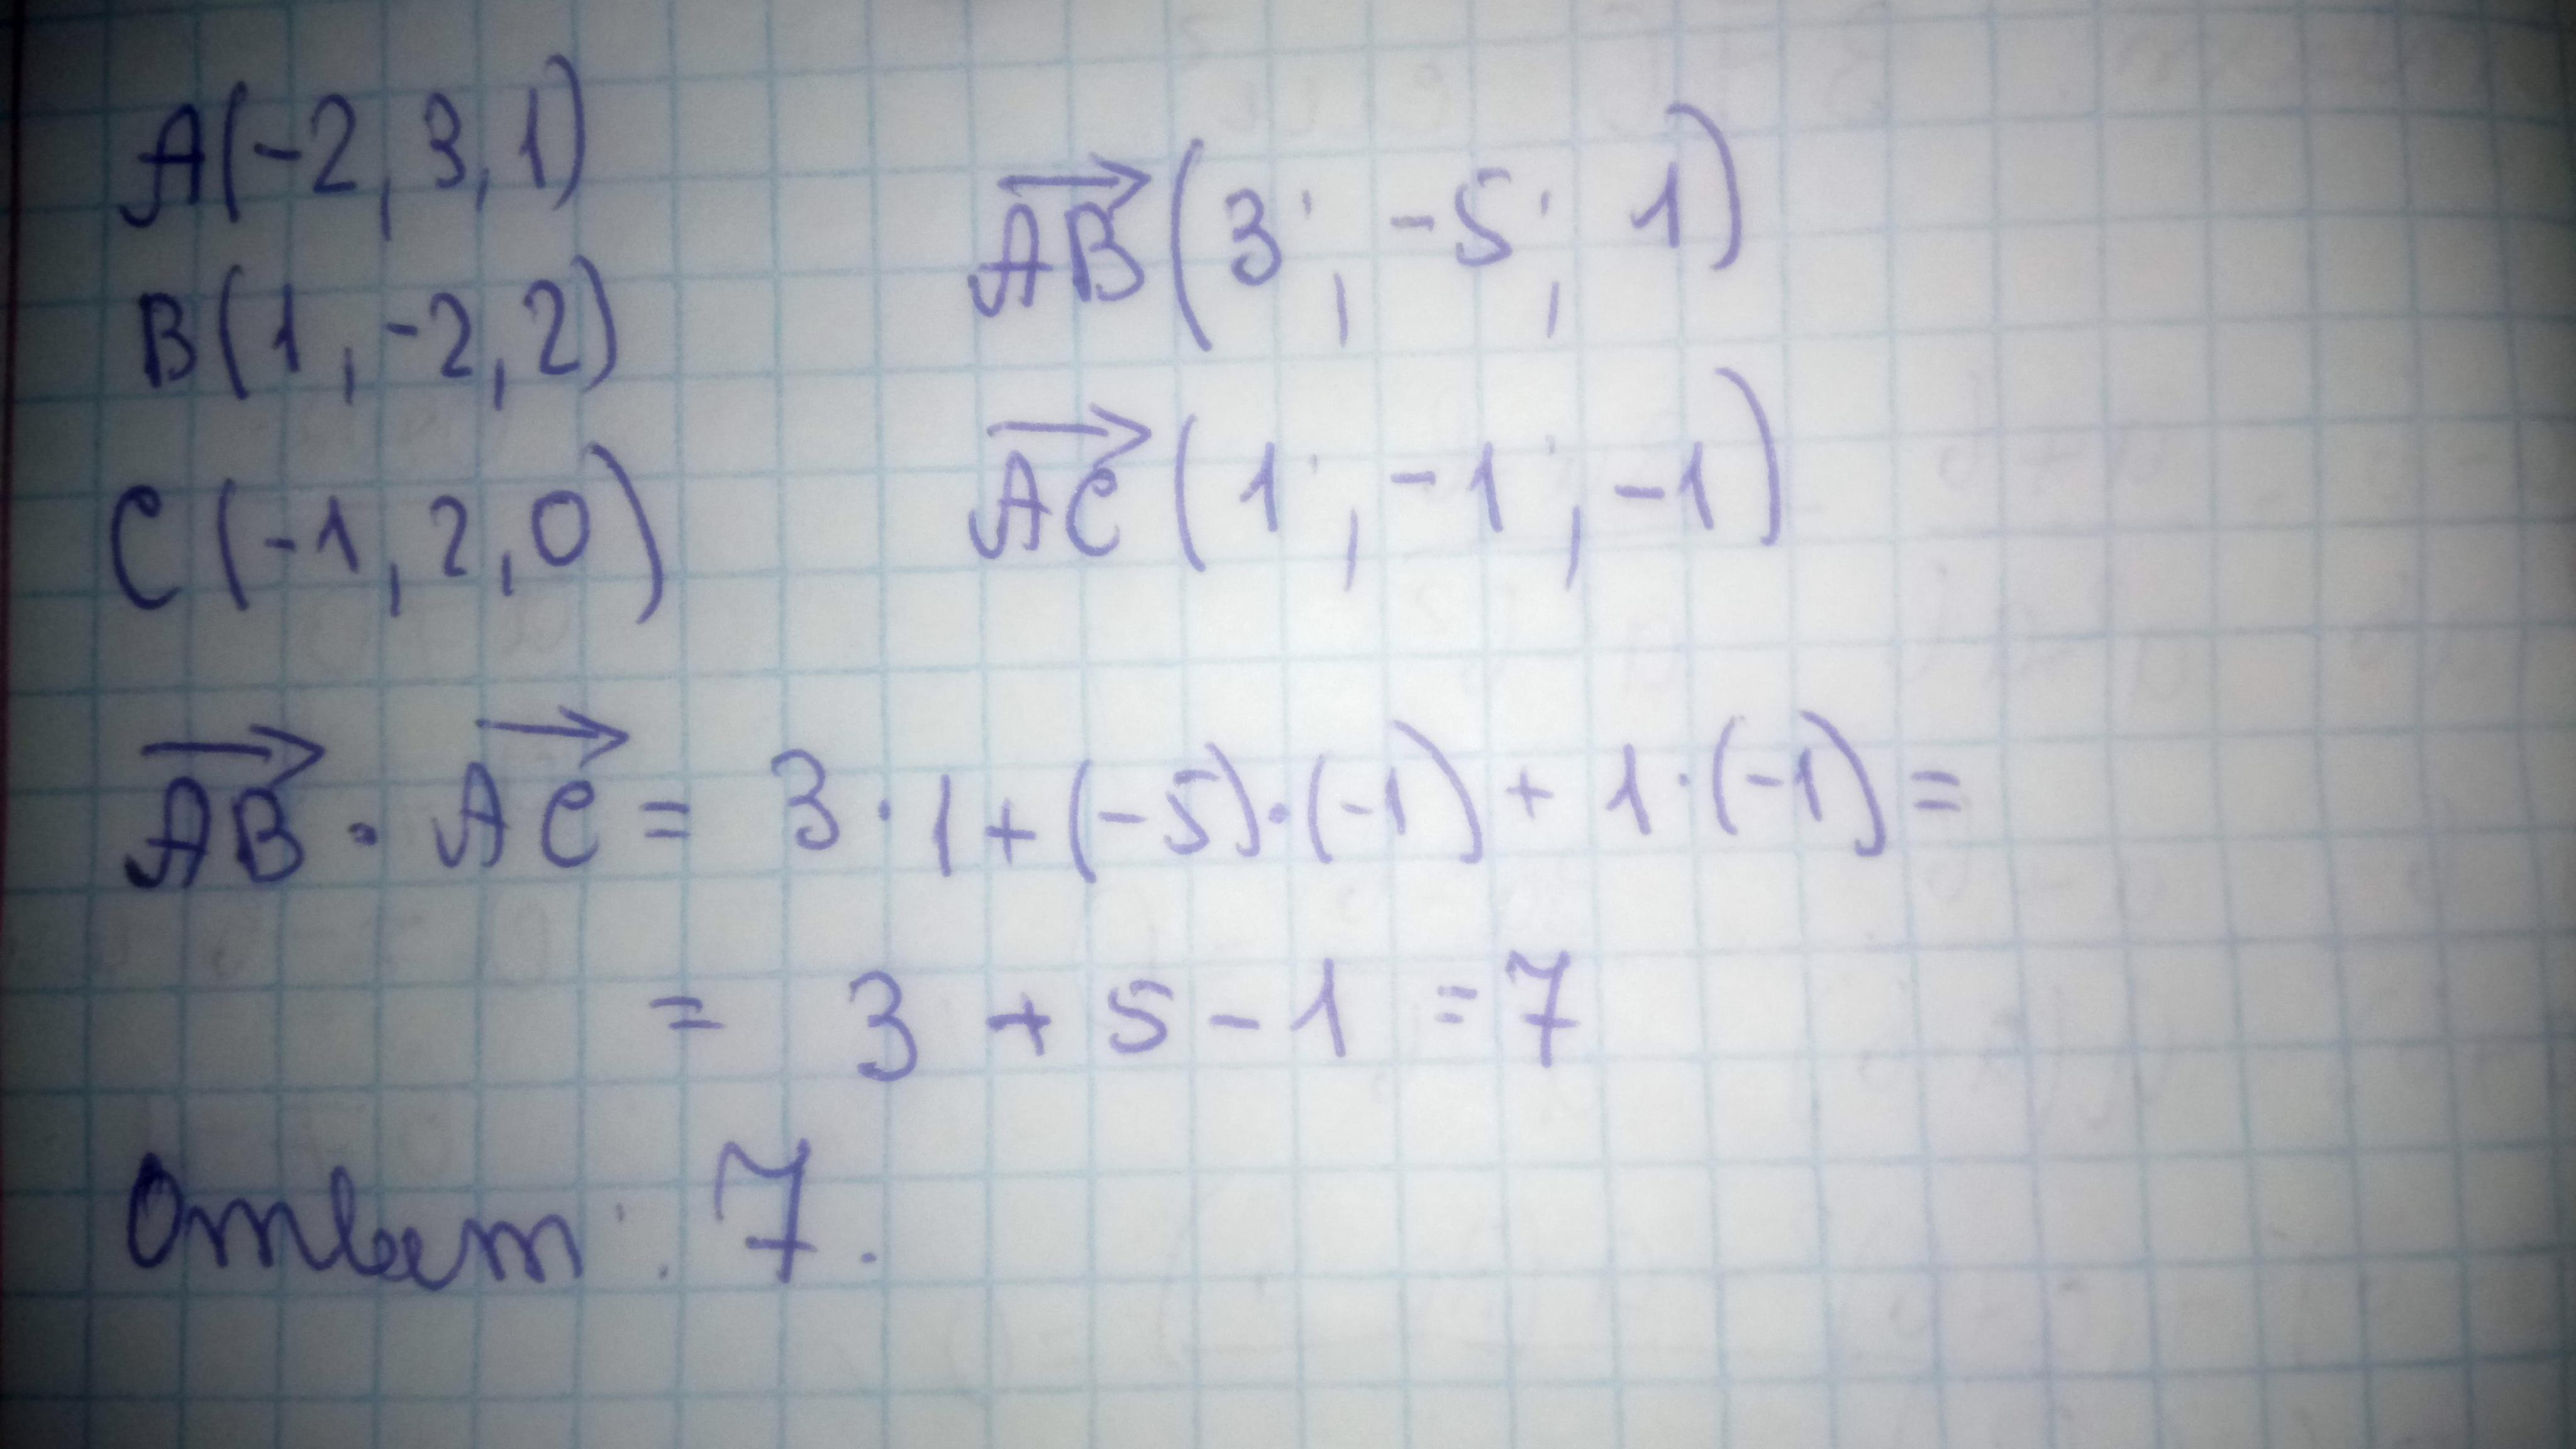 A(-2, 3, 1)
B(1, -2, 2)
C(-1, 2, 0)
AB→(3 ; -5 ; 1)
AC→(1 ; -1 ; -1)
AB→ · AC→ = 3 · 1 + (-5) · (-1) + 1 · (-1) =
= 3 + 5 - 1 = 7
Ответ: 7.